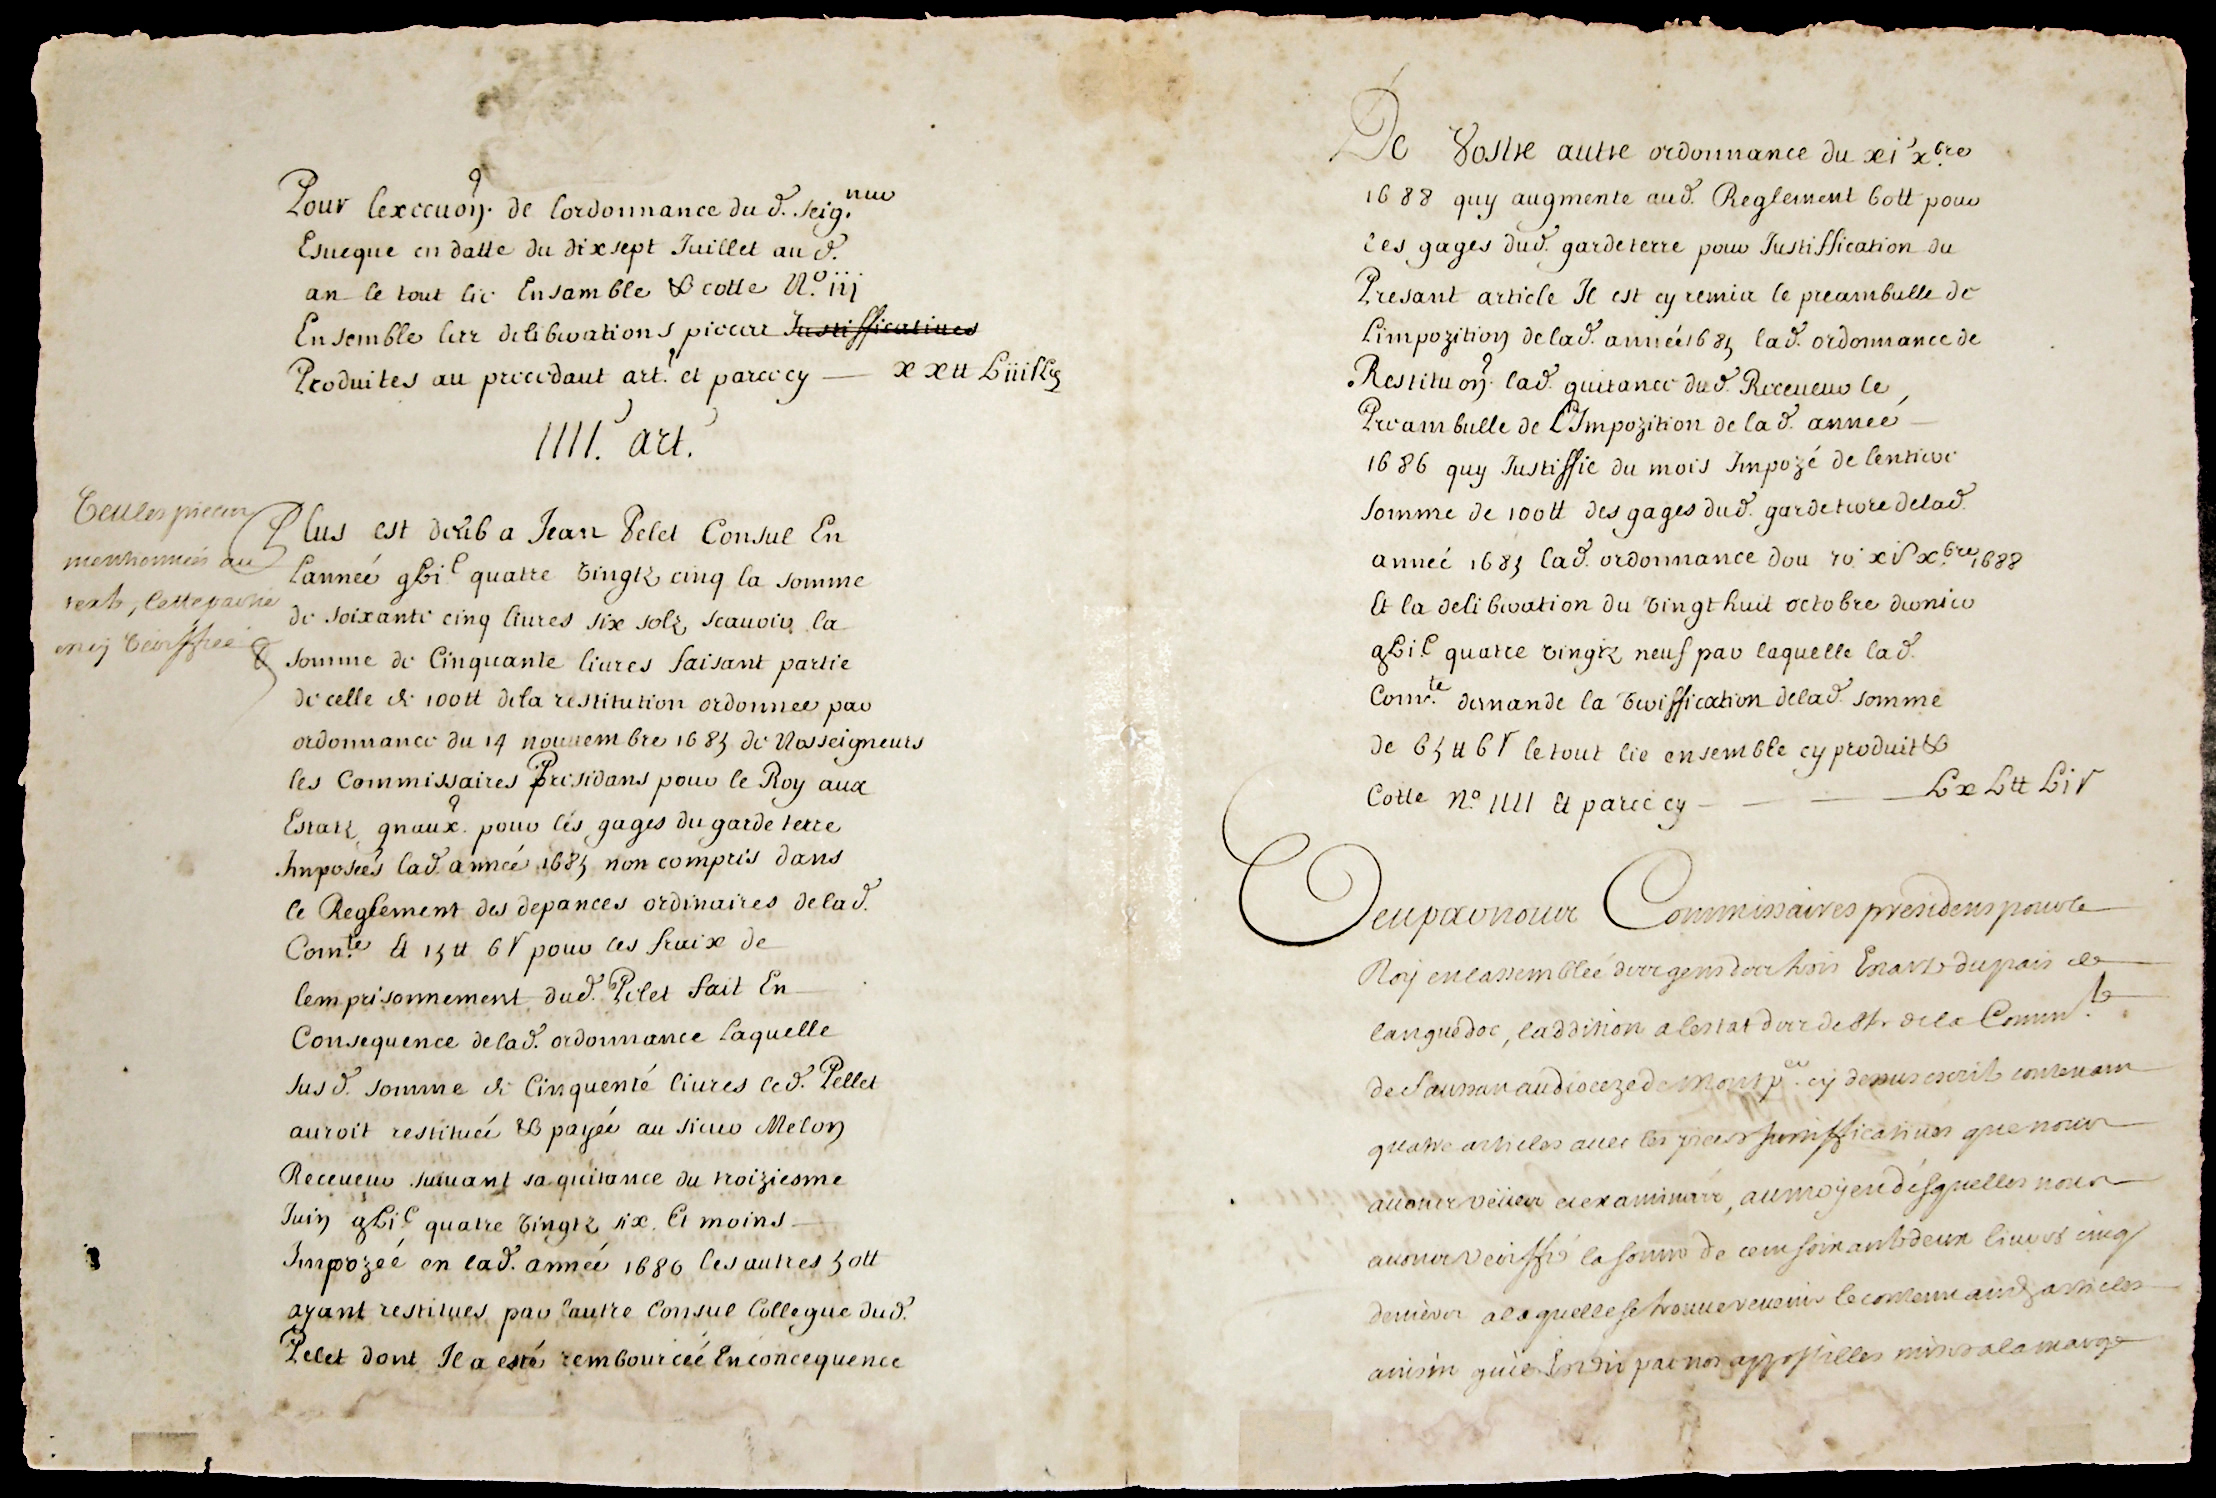 Pour lexecuon. de lordonnance du d. seig.neur
Esueque en datte du dixsept Juillet aud.
an le tout lié Ensamble & cotté N.o iij
Ensemble les deliberations pieces Justifficatiues
Produites au precedant art. et parce cy — xxtt Liiijs
IIII. art.
Veu les pieces
mentionnées au
texte, cette partie
en ij veriffiée
Plus est deub a Jean Pelet Consul En
Lanneé gLic quatre vingtz cinq la somme
de soixante cinq liures six solz, scauoir la
somme de Cinquante liures faisant partie
de celle de 100tt dela restitution ordonnee par
ordonnance du 14 nouuembre 1685 de Nosseigneurs
les Commissaires Presidans pour le Roy aux
Estatz gnaux. pour les gages du garde terre
Imposeés lad. anneé 1685 non compris dans
le Reglement des depances ordinaires delad.
Com.te Et 15tt 6s pour les fraix de
lemprisonnement dud. Pelet fait En
Consequence delad. ordonnance Laquelle
susd. somme de Cinquente liures led. Pellet
auroit restitueé & payée au sieur Melon
Receueur suiuant sa quitance du troiziesme
Juin gLic quatre vingtz six. Et moins
Impozeé en lad. anneé 1686 les autres 50tt
ayant restitues par lautre Consul Collegue dud.
Pelet dont Il a esté rembourceé En concequence
De Vostre autre ordonnance du xie xbre
1688 quy augmente aud. Reglement 60tt pour
les gages dud. gardeterre pour Justiffication du
Presant article Il est cy remis le preambulle de
Limpozition delad. anneé 1685 lad. ordonnance de
Restituon. lad. quitance dud. Receueur le
Preambulle de L'Impozition de lad. anneé
1686 quy Justiffie du mois Impozé de lentiere
somme de 100tt des gages dud. gardeterre delad.
anneé 1685 lad. ordonnance dou xie xbre 1688
Et la deliberation du vingt huit octobre dernier
gLic quatre vingtz neuf par laquelle lad.
Com.te demande la veriffication delad. somme
de 65tt 6s le tout lie ensemble cy produit &
Cotte N.o IIII Et parce cy — Lx Ltt Lis
Veu par nous Commissaires presidens pour le
Roy en lassembleé des gens des trois Estats du pais de
languedoc, laddition a lestat des debtes de la Comm.te
de Saussan au dioceze de Montp.er cy dessus escrit contenant
quatre articles auec les pieces Justifficatiues que nous
auons veues et examineés, au moyen desquelles nous
auons veriffié la somme de cent soixante deux liures cinq
deniers a laquelle se trouue reuenir le contenu ausdz articles
ainsin quil Est dit par nos appostilles mises a la marge